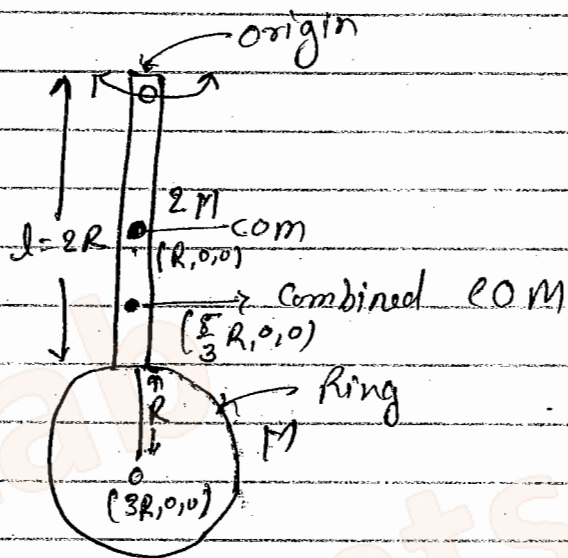 origin
2M
com
l=2R
(R,0,0)
Combined COM
(5/3 R,0,0)
Ring
R
M
(3R,0,0)